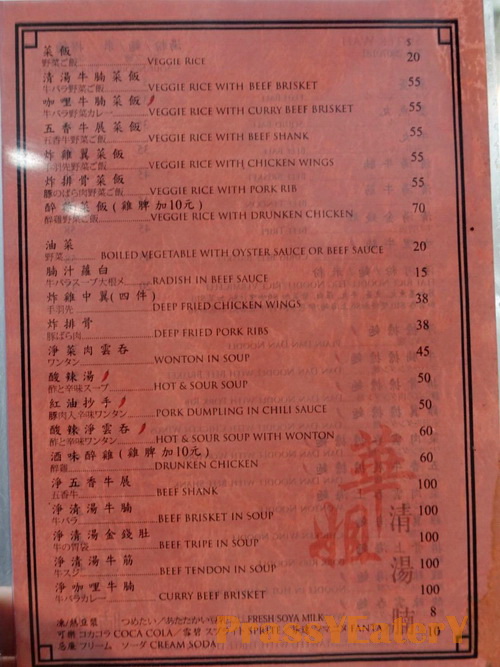 $
菜飯
野菜ご飯 VEGGIE RICE 20
清湯牛腩菜飯
牛バラ野菜ご飯 VEGGIE RICE WITH BEEF BRISKET 55
咖哩牛腩菜飯
牛バラ野菜カレー VEGGIE RICE WITH CURRY BEEF BRISKET 55
五香牛展菜飯
五香牛野菜ご飯 VEGGIE RICE WITH BEEF SHANK 55
炸雞翼菜飯
手羽先野菜ご飯 VEGGIE RICE WITH CHICKEN WINGS 55
炸排骨菜飯
豚のばら肉野菜ご飯 VEGGIE RICE WITH PORK RIB 55
醉雞菜飯(雞脾加10元)
醉雞野菜ご飯 VEGGIE RICE WITH DRUNKEN CHICKEN 70
油菜
野菜 BOILED VEGETABLE WITH OYSTER SAUCE OR BEEF SAUCE 20
腩汁蘿白
牛バラスープ大根〆 RADISH IN BEEF SAUCE 15
炸雞中翼(四件)
手羽先 DEEP FRIED CHICKEN WINGS 38
炸排骨
豚ばら肉 DEEP FRIED PORK RIBS 38
淨菜肉雲吞
ワンタン WONTON IN SOUP 45
酸辣湯
酢と辛味スープ HOT & SOUR SOUP 50
紅油抄手
豚肉入辛味ワンタン PORK DUMPLING IN CHILI SAUCE 50
酸辣淨雲吞
酢と辛味ワンタン HOT & SOUR SOUP WITH WONTON 60
酒味醉雞(雞脾加10元)
醉雞 DRUNKEN CHICKEN 60
淨五香牛展
五香牛 BEEF SHANK 100
淨清湯牛腩
牛バラ BEEF BRISKET IN SOUP 100
淨清湯金錢肚
牛の胃袋 BEEF TRIPE IN SOUP 100
淨清湯牛筋
牛スジ BEEF TENDON IN SOUP 100
淨咖哩牛腩
牛バラカレー CURRY BEEF BRISKET 100
凍/熱豆漿 つめたい/あたたかい FRESH SOYA MILK 8
可樂 コカコラ COCA COLA/雪碧 SPRITE FANTA 10
忌廉 クリーム・ソーダ CREAM SODA
華姐
清湯腩
PrassYEaterY